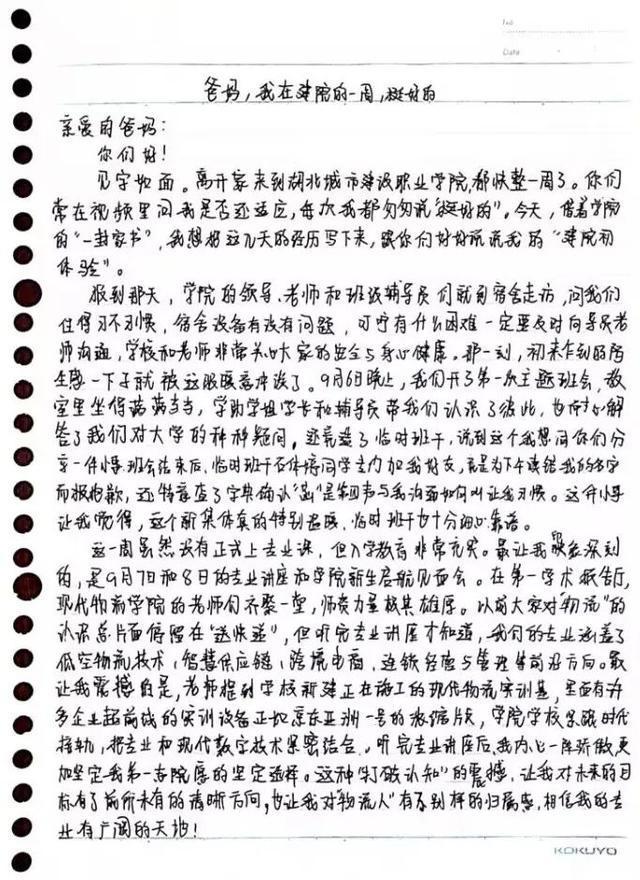 No
Date
爸妈，我在建院的一周，挺好的
亲爱的爸妈：
你们好！
见字如面。离开家来到湖北城市建设职业学院，都快整一周了。你们
常在视频里问我是否还适应，每次我都匆匆说“挺好的”。今天，借着学院
的“一封家书”，我想把这几天的经历写下来，跟你们好好说说我的“建院初
体验”。
报到那天，学院的领导、老师和班级辅导员们就到宿舍走访，问我们
住得习不习惯，宿舍设备有没有问题，叮咛有什么困难一定要及时向导员老
师沟通，学校和老师非常关心大家的安全与身心健康。那一刻，初来乍到的陌
生感一下子就被这股暖意冲淡了。9月6日晚上，我们开了第一次主题班会，教
室里坐得满满当当，学助学姐学长和辅导员带我们认识了彼此，也耐心解
答了我们对大学的种种疑问，还竞选了临时班干，说到这个我想同你们分
享一件小事，班会结束后，临时班干石体婷同学专门加我好友，就是为下午读错我的名字
而报抱歉，还特意查了字典确认“ ”是第四声与我沟通如何叫让我习惯。这件小事
让我觉得，这个新集体真的特别温暖，临时班干也十分细心靠谱。
这一周虽然没有正式上专业课，但入学教育非常充实。最让我印象深刻
的，是9月7日和8日的专业讲座和学院新生启航见面会。在第一学术报告厅，
现代物流学院的老师们齐聚一堂，师资力量极其雄厚。以前大家对“物流”的
认识总片面停留在“送快递”，但听完专业讲座才知道，我们的专业涵盖了
低空物流技术、智慧供应链、跨境电商、连锁经营与管理等前沿方向。最
让我震撼的是，老师提到学校新建正在施工的现代物流实训基，里面有许
多企业超前线的实训设备正如京东亚洲一号的浓缩版，学院学校紧跟时代
接轨，把专业和现代数字技术紧密结合。听完专业讲座后，我内心一阵骄傲更
加坚定我第一志愿的坚定选择。这种“打破认知”的震撼，让我对未来的目
标有了前所未有的清晰方向，也让我对“物流人”有了别样的归属感，相信我的专
业有广阔的天地！
KOKUYO